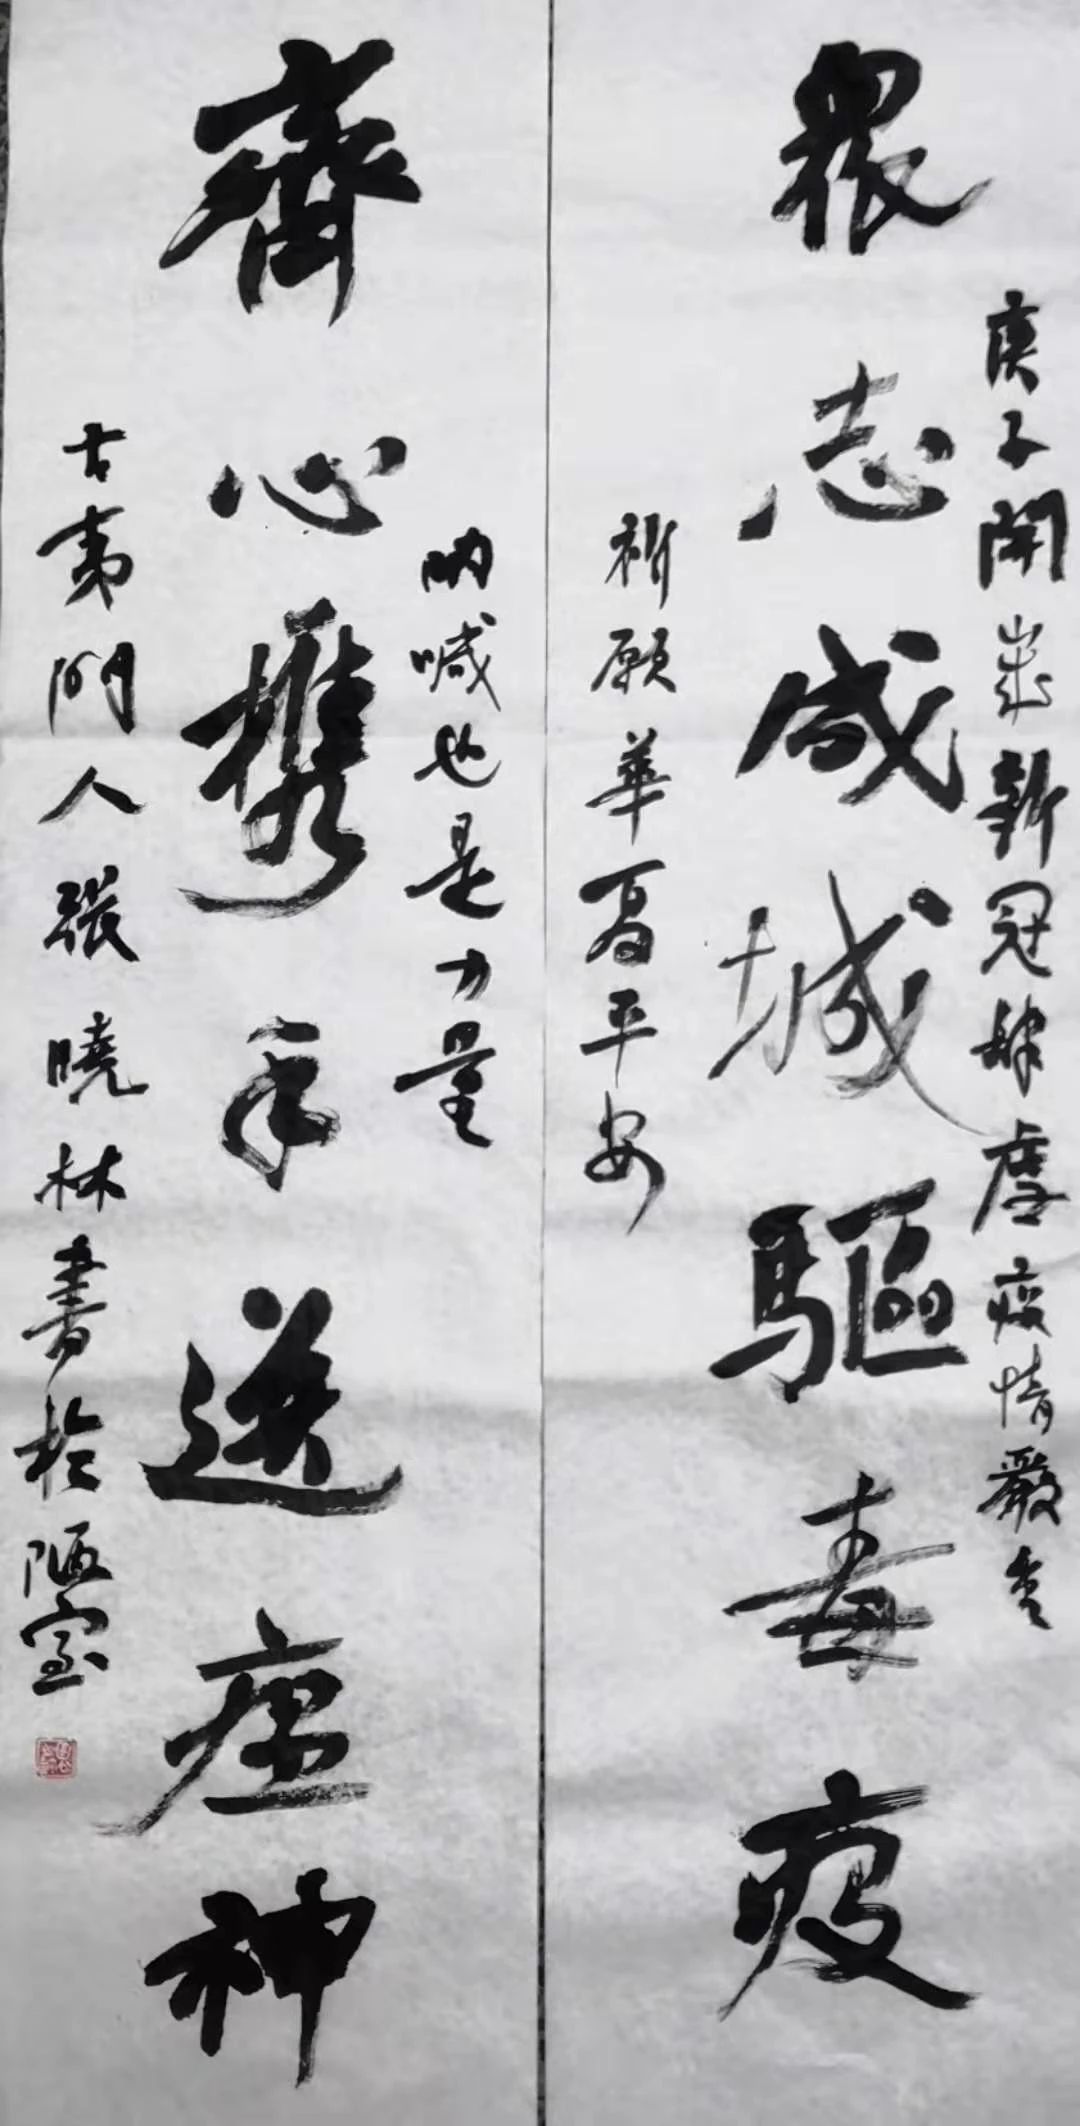 庚子開歲新冠肆虐疫情嚴
眾志成城驅毒疫
祈願華夏平安
吶喊也是力量
齊心携手送瘟神
古夷門人張曉林書於陋室